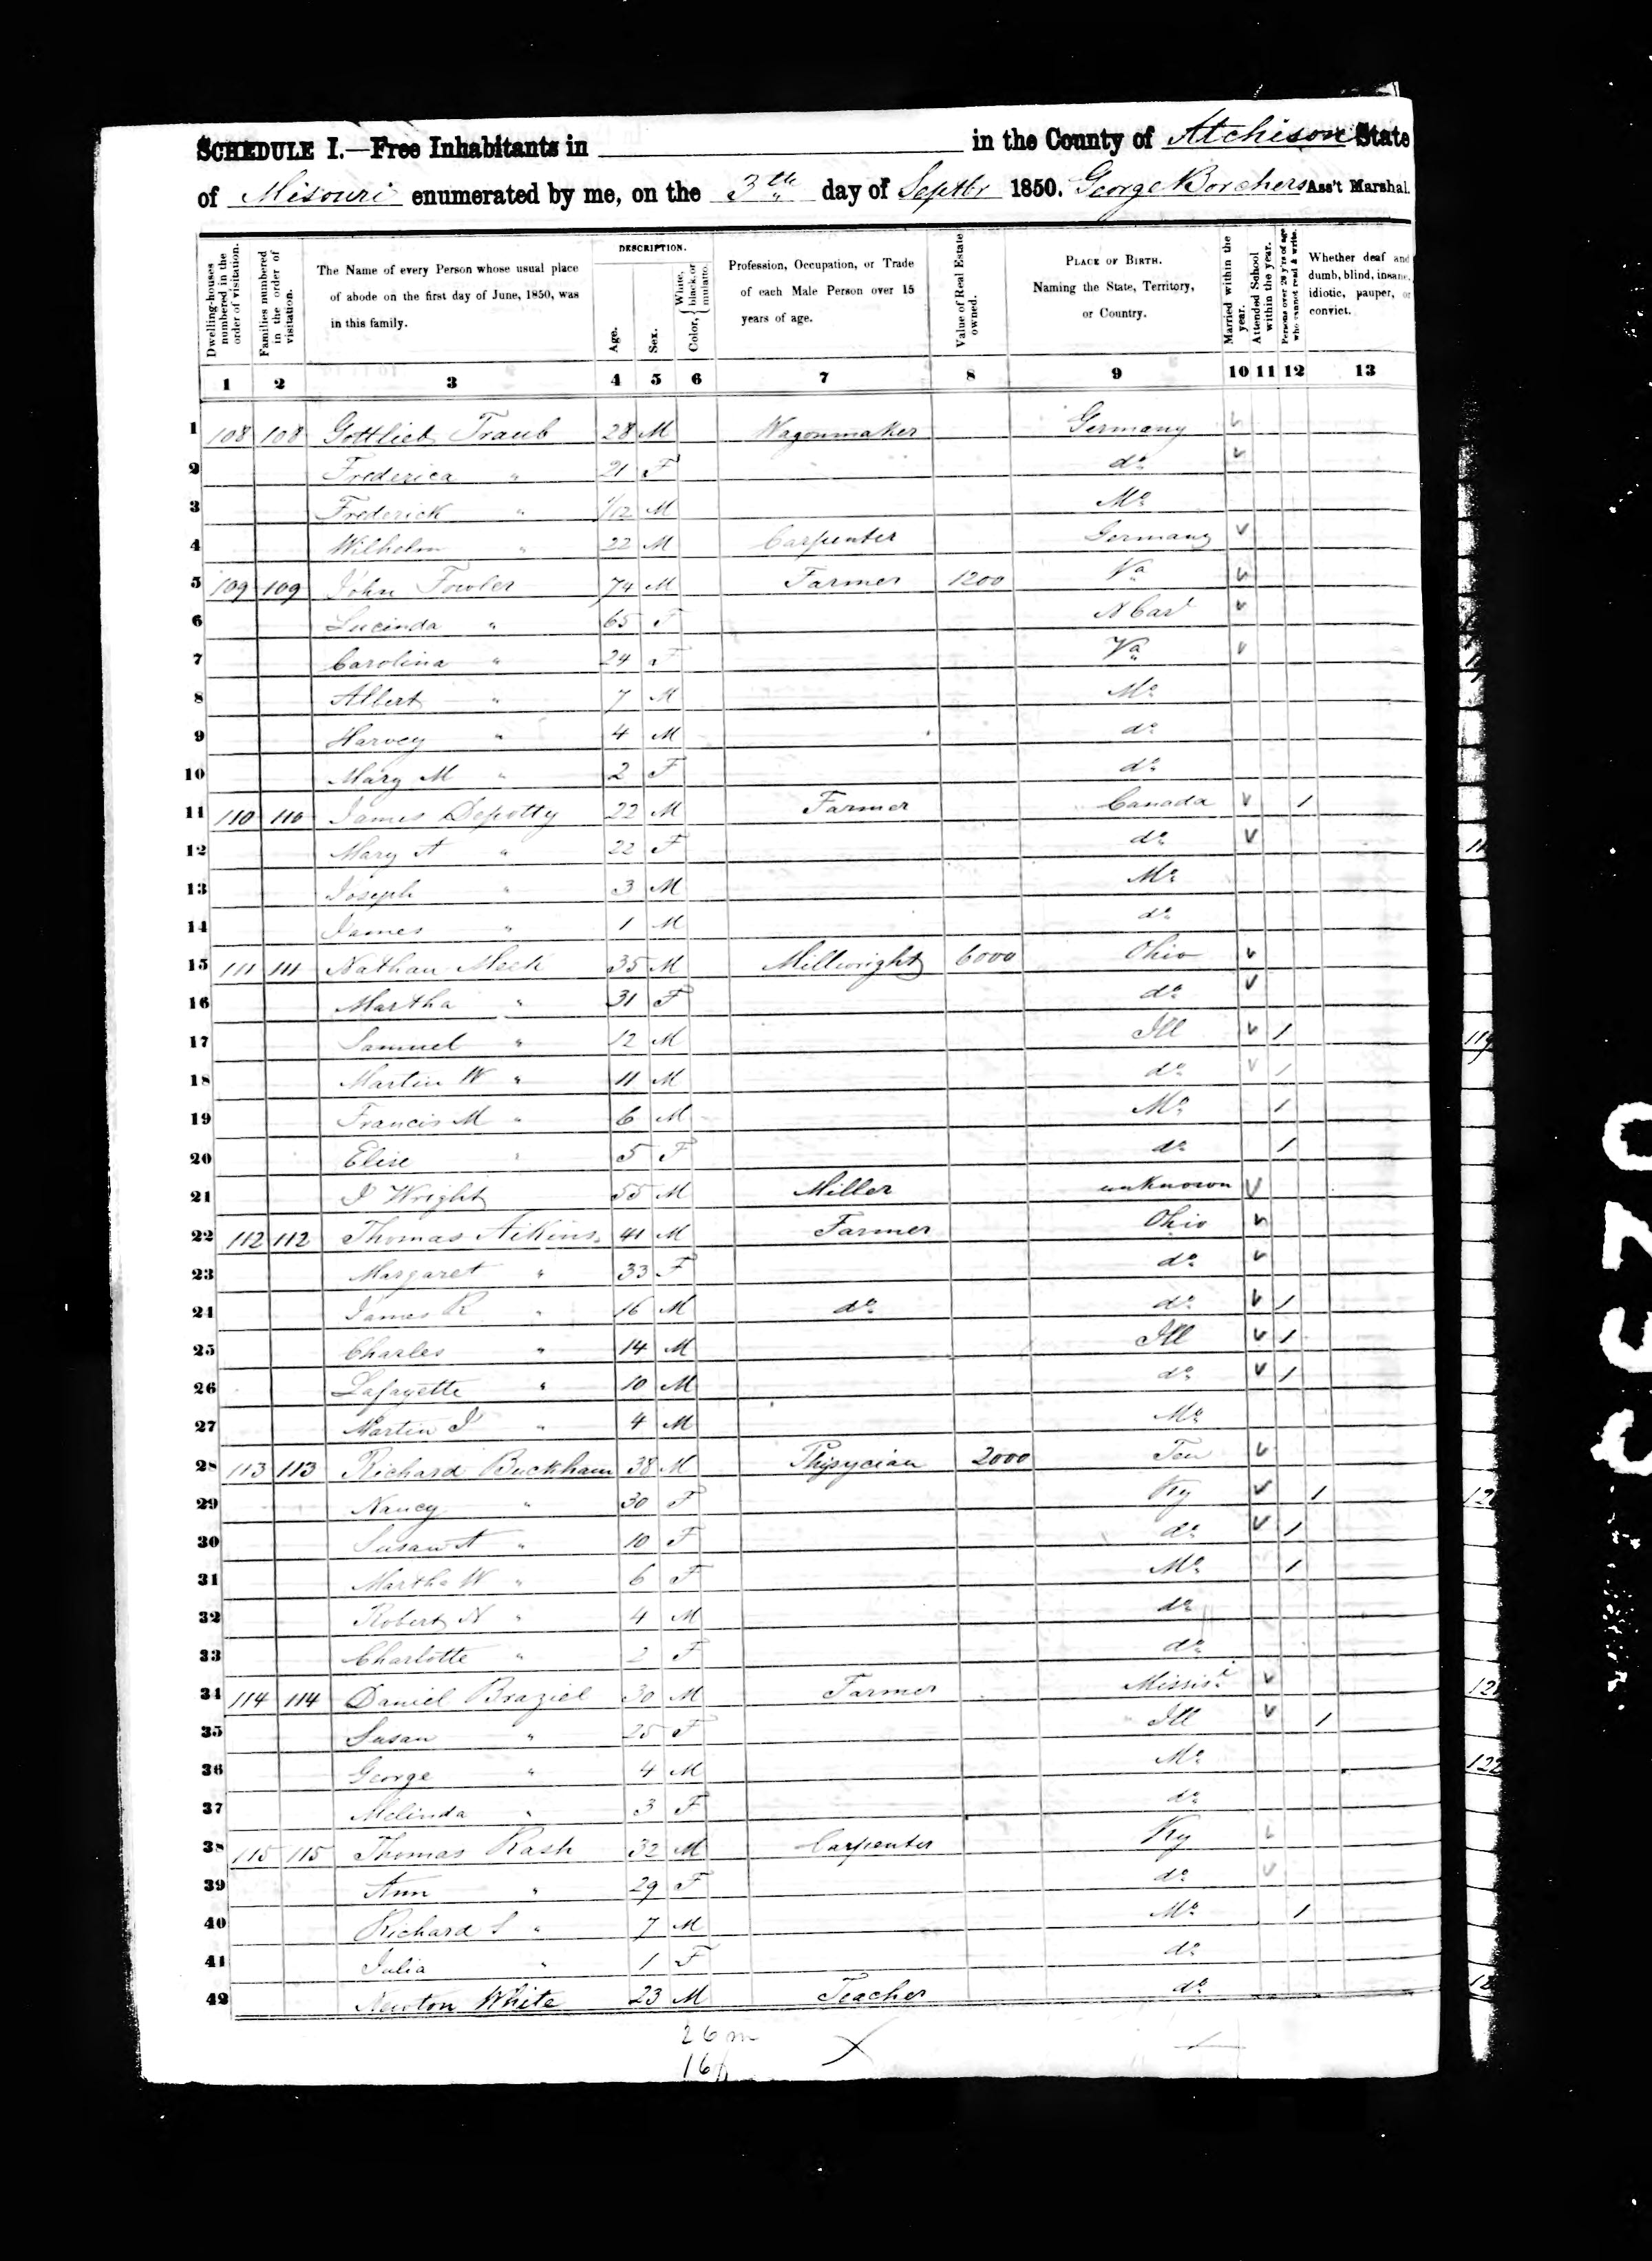 SCHEDULE I.—Free Inhabitants in in the County of Atchison State
of Misouri enumerated by me, on the 3th day of Septbr 1850. George Borchers Ass't Marshal.
Dwelling-houses numbered in the order of visitation.
Families numbered in the order of visitation.
The Name of every Person whose usual place of abode on the first day of June, 1850, was in this family.
DESCRIPTION.
Age.
Sex.
Color, { White, black, or mulatto.
Profession, Occupation, or Trade of each Male Person over 15 years of age.
Value of Real Estate owned.
PLACE OF BIRTH. Naming the State, Territory, or Country.
Married within the year.
Attended School within the year.
Persons over 20 y'rs of age who cannot read & write.
Whether deaf and dumb, blind, insane, idiotic, pauper, or convict.
1 2 3 4 5 6 7 8 9 10 11 12 13
1 108 108 Gottlieb Traub 28 M Wagonmaker Germany
2 Frederica " 21 F do
3 Frederick " 1/12 M Mo
4 Wilhelm " 22 M Carpenter Germany
5 109 109 John Fowler 74 M Farmer 1200 Va
6 Lucinda " 65 F N Car
7 Carolina " 24 F Va
8 Albert " 7 M Mo
9 Harvey " 4 M do
10 Mary M " 2 F do
11 110 110 James Depotty 22 M Farmer Canada 1
12 Mary A " 22 F do
13 Joseph " 3 M Mo
14 James " 1 M do
15 111 111 Nathan Meek 35 M Millwright 6000 Ohio
16 Martha " 31 F do
17 Samuel " 12 M Ill 1
18 Martin W " 11 M do 1
19 Francis M " 6 M Mo 1
20 Elise " 5 F do 1
21 J Wright 55 M Miller unknown
22 112 112 Thomas Aikins 41 M Farmer Ohio
23 Margaret " 33 F do
24 James R " 16 M do do 1
25 Charles " 14 M Ill 1
26 Lafayette " 10 M do 1
27 Martin J " 4 M Mo
28 113 113 Richard Buckham 38 M Phisycian 2000 Ten
29 Nancy " 30 F Ky 1
30 Susan A " 10 F do 1
31 Martha W " 6 F Mo 1
32 Robert N " 4 M do
33 Charlotte " 2 F do
34 114 114 Daniel Braziel 30 M Farmer Missisi
35 Susan " 25 F Ill 1
36 George " 4 M Mo
37 Melinda " 3 F do
38 115 115 Thomas Rash 32 M Carpenter Ky
39 Ann " 29 F do
40 Richard S " 7 M Mo 1
41 Julia " 1 F do
42 Newton White 23 M Teacher do
26 m
16 f